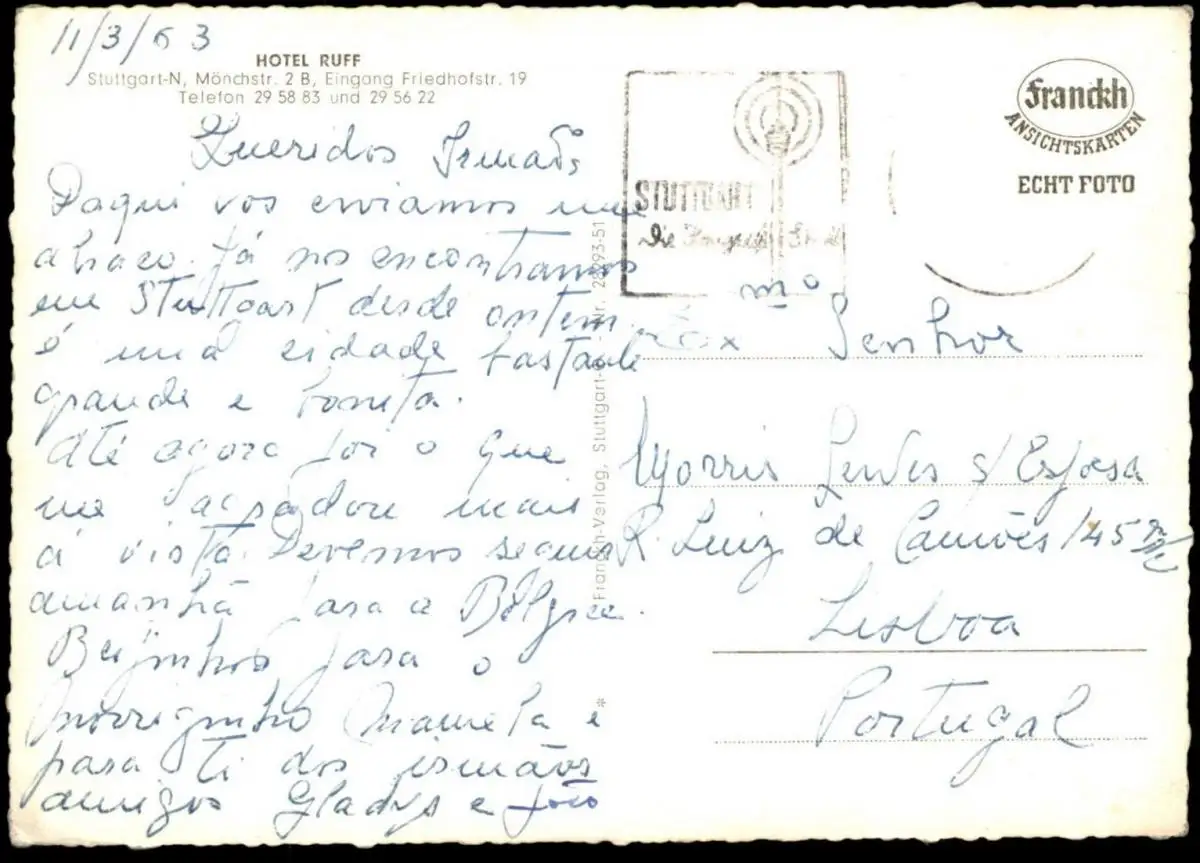 11/3/63
HOTEL RUFF
Stuttgart-N, Mönchstr. 2 B, Eingang Friedhofstr. 19
Telefon 29 58 83 und 29 56 22
Queridos Irmãos
Daqui vos enviamos um
abraço. Já nos encontramos
em Stuttgart desde ontem.
é uma cidade bastante
grande e bonita.
Até agora foi o que
me agradou mais
á vista. Devemos seguir
amanhã para a Bélgica.
Beijinhos para o
Morrizinho Marieta e
para ti dos irmãos
amigos Gladys e João
Franckh-Verlag, Stuttgart- Nr. 28293-51
*
STUTTGART
Die Stadt
Franckh
ANSICHTSKARTEN
ECHT FOTO
Ex mº Senhor
Morris s/ Esposa
R. Luiz de Camões 145
Lisboa
Portugal